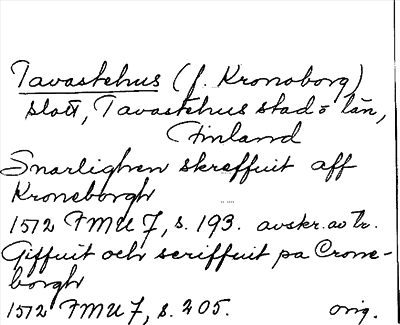 Tavastehus (f. Kronoborg)
slott, Tavastehus stad o län,
Finland
Snarlighen skreffuit aff
Kroneborgh
1512 FMU 7, s. 193. avskr. av Tr.
Giffuit och scriffuit pa Crone-
borgh
1512 FMU 7, s. 205. orig.